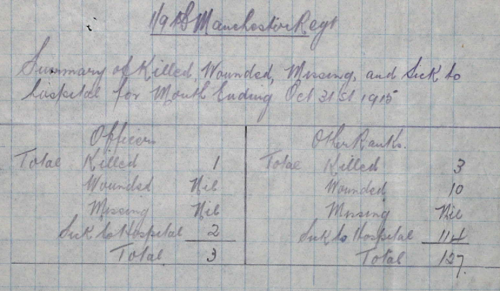 1/9th Manchester Regt
Summary of Killed, Wounded, Missing, and Sick to
Hospital for Month Ending Oct 31st 1915
Officers
Total Killed 1
Wounded Nil
Missing Nil
Sick to Hospital 2
Total 3
Other Ranks.
Total Killed 3
Wounded 10
Missing Nil
Sick to Hospital 114
Total 127